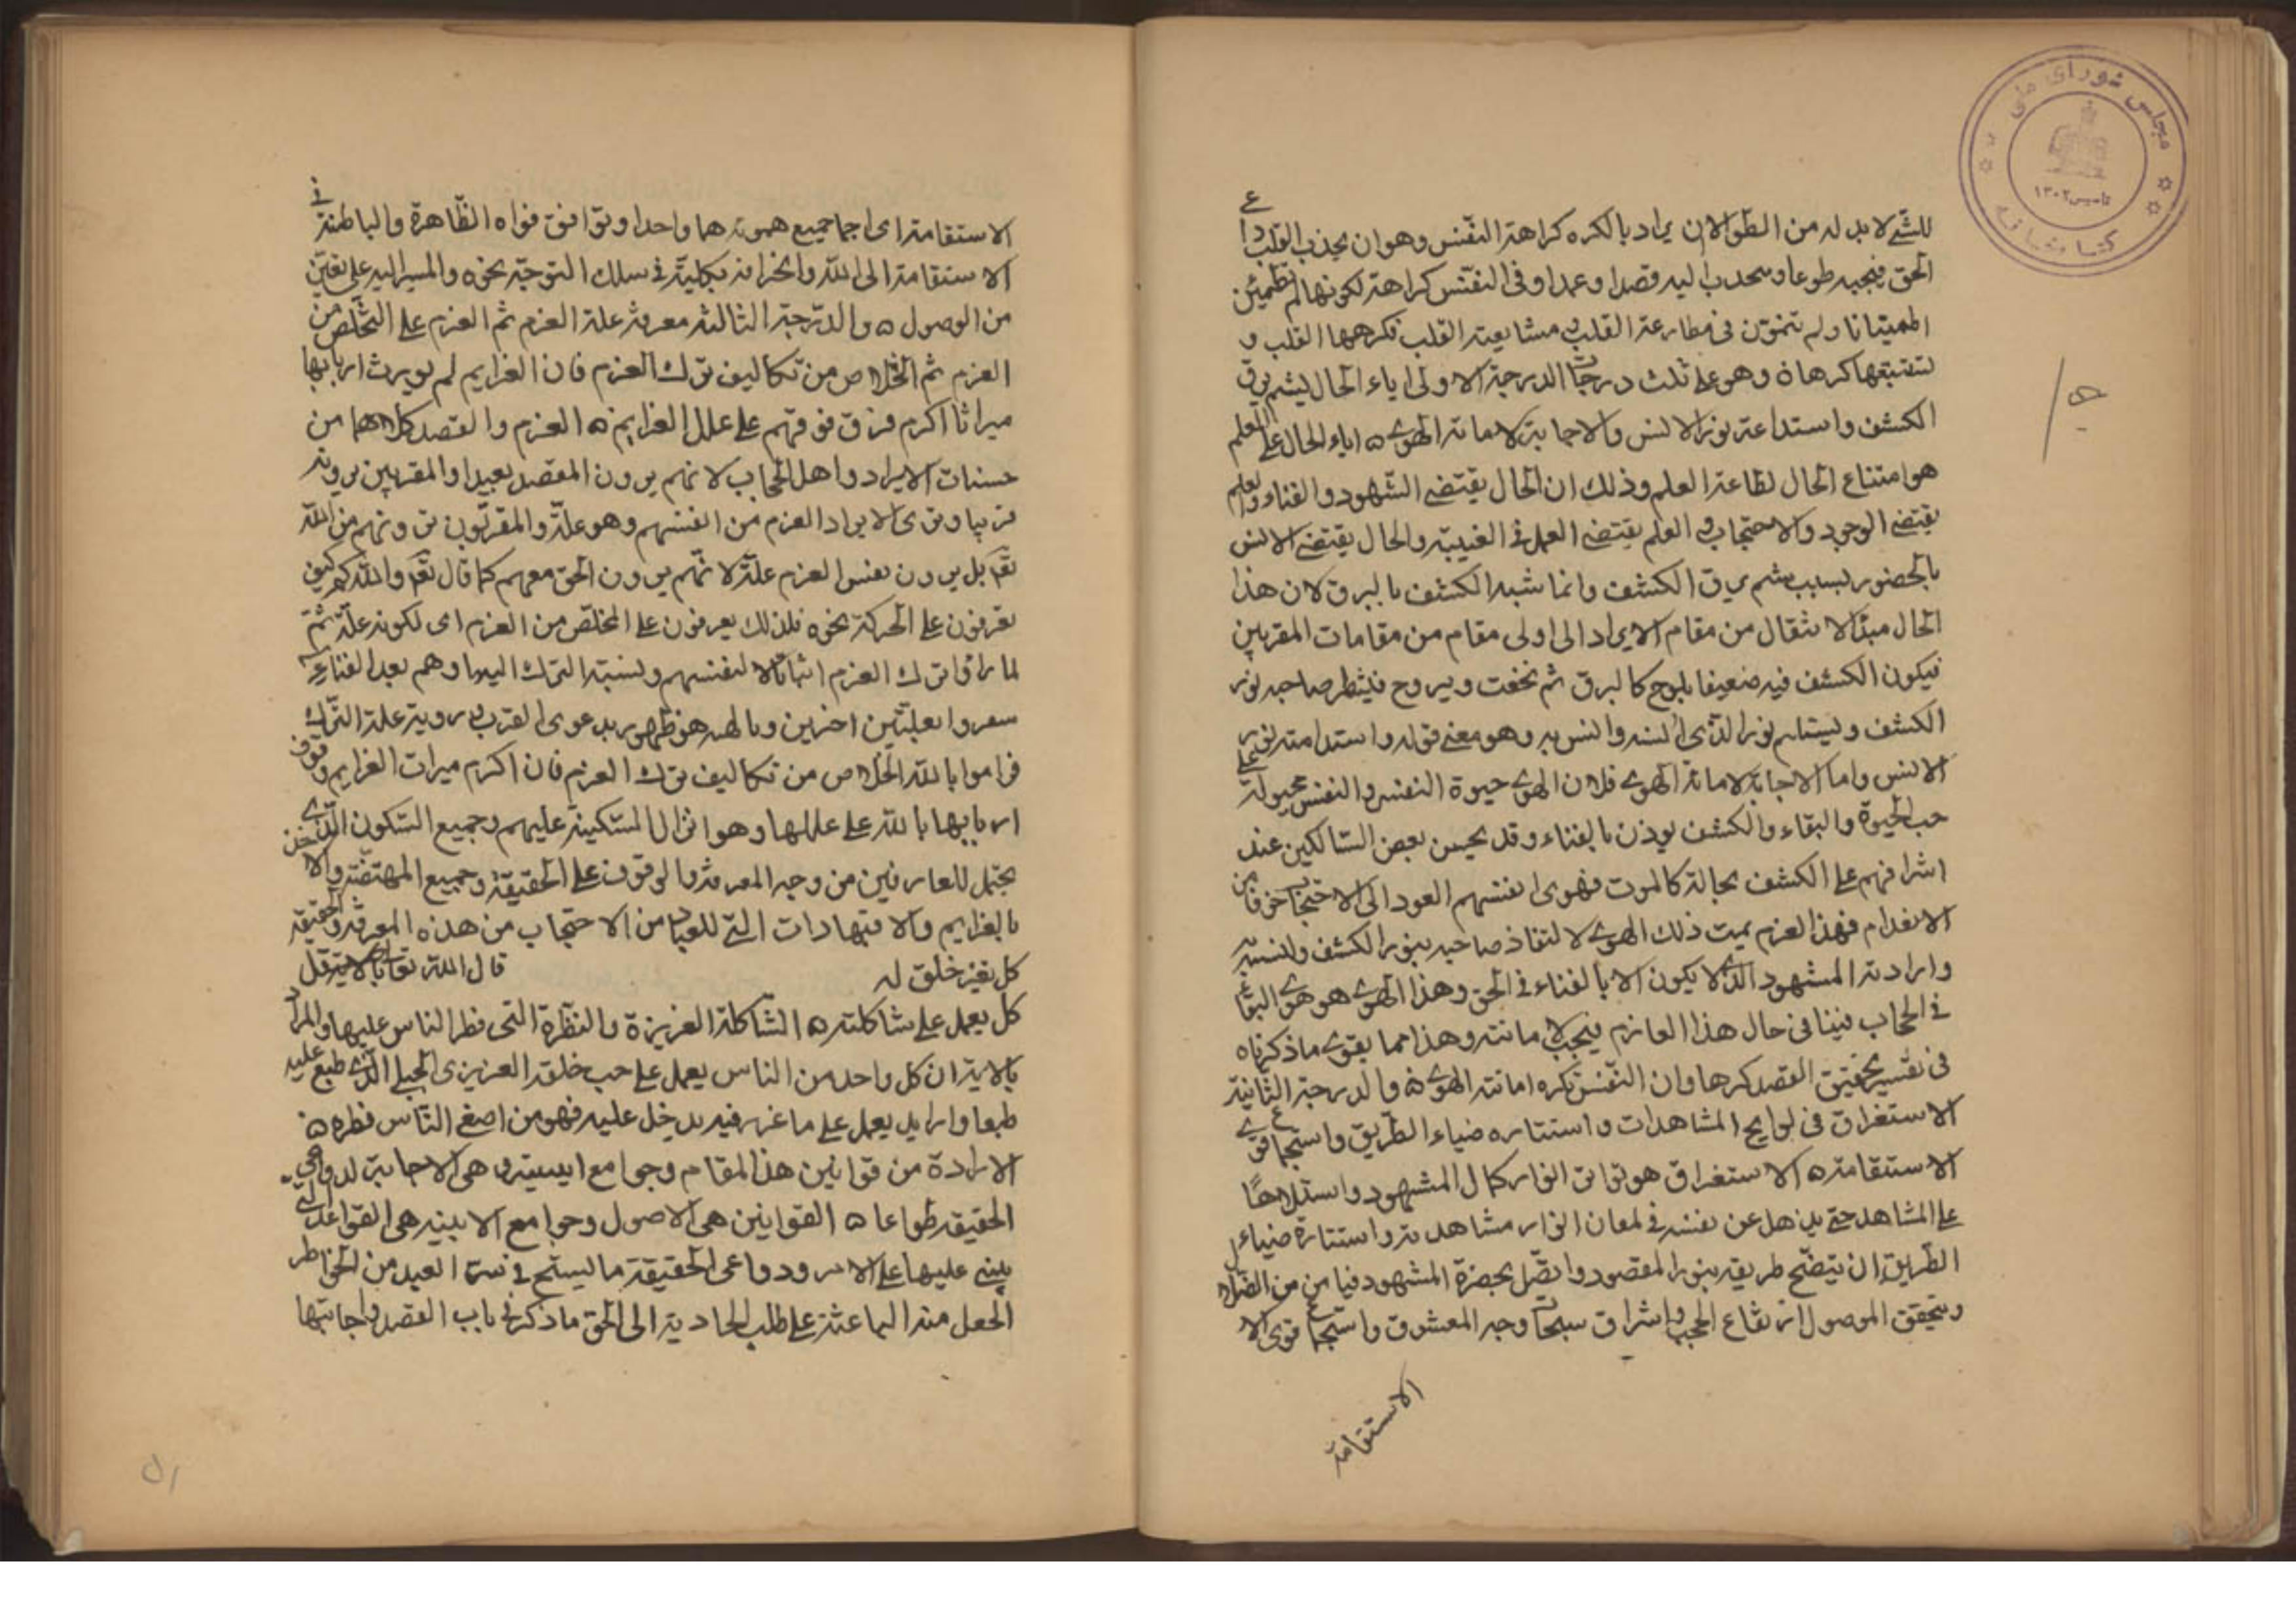 مجلس شورای ملی
تأسیس ۱۳۰۲
کتابخانه
للشئ لا بد له من الطو الا ان يراد بالكره كراهة النفس وهو ان يجذب القلب داع
الحق فيجيبه طوعا و ىحدب اليه قصدا وعمدا وفى النفس كراهة لكونها لم تطمئن
اطمينانا ولم تتمرن فى مطاوعة القلب و مشايعته القلب فكرهها القلب و
تستتبعها كرها ۵ وهو على ثلث درجات الدرجة الاولى اباء الحال ليشم برق
الكشف واستداعة نور الانس والاجابة لاماتة الهوى ۵ اباء الحال على العلم
هو امتناع الحال لطاعة العلم وذلك ان الحال يقتضى الشهود والفناء والعلم
يقتضى الوجود والاحتجاب و العلم يقتضى العمل فى الغيبة والحال يقتضى الانس
بالحضور بسبب شم برق الكشف وانما شبه الكشف بالبرق لان هذا
الحال مبدأ الانتقال من مقام الابراد الى اولى مقام من مقامات المقربين
فيكون الكشف فيه ضعيفا يلوح كالبرق ثم يخفت ويروح فينتظر صاحبه نور
الكشف ويستديم نور الذى انسه وانس به وهو معنى قوله واستدامته نور
الانس واما الاجابة لاماتة الهوى فلان الهوى حيوة النفس والنفس مجبولة على
حب الحيوة والبقاء والكشف يوذن بالفناء وقد يحس بعض السالكين عند
اشرافهم على الكشف بحالة كالموت فهوى انفسهم العود الى الاحتجاب خوفا من
الانعدام فهذا العزم يميت ذلك الهوى لالتذاذ صاحبه بنور الكشف وانسه به
وارادته المشهود الذى لا يكون الا بالفناء فى الحق وهذا الهوى هو هوى البقاء
فى الحجاب فينافى حال هذا العازم فيجب لاماتته وهذا مما يقوى ما ذكرناه
فى تفسير تحقيق القصد كرها وان النفس تكره اماتة الهوى ۵ والدرجة الثانية
الاستغراق فى لوايح المشاهدات واستناره ضياء الطريق واستجماع قوى
الاستقامة ۵ الاستغراق هو تواتر انوار كمال المشهود واستيلاءها
على المشاهد حتى يذهل عن نفسه فى لمعان انوار مشاهدته واستنارة ضياء
الطريق ان يتضح طريقه بنور المقصود واتصل بحضرة المشهود فيامن من الضلال
ويتحقق الوصول ارتفاع الحجب و اشراق سبحات وجه المعشوق واستجماع قوى الا
الاستقامة
الاستقامة اى اجماع جميع همومه هما واحدا وتوافق قواه الظاهرة والباطنة فى
الاستقامة الى الله وانخراطه بكليته فى سلك التوجه نحوه والمسير اليه على يقين
من الوصول ۵ والدرجة الثالثه معرفة علة العزم ثم العزم على التخلص من
العزم ثم الخلاص من تكاليف ترك العزم فان العزايم لم يورث اربابها
ميراثا اكرم من وقوفهم على علل العزايم ۵ العزم والقصد كلاهما من
حسنات الابراد واهل الحجاب لانهم يرون المقصد بعيدا والمقربين يرونه
قريبا وترى الابراد العزم من انفسهم وهو علة والمقربون يرونهم من الله
تعم بل يرون نفس العزم علة لانهم يرون الحق معهم كما قال تعم والله معكم كيف
يعزفون على الحركة نحوه فلذلك يعرفون على التخلص من العزم اى لكونه علة ثم
لما راوا ترك العزم اثباتا لانفسهم ونسبة الترك اليها وهم بعد الفناء
سعروا بعلتين اخرين وبالهه هو ظهور بدعوى القرب فى روية علة الترك
فراموا بالله الخلاص من تكاليف ترك العزم فان اكرم ميراث العزايم وقوف
اربابها بالله على عللها وهو انزال السكينة عليهم وجميع السكون الذى
يحتمل للعارفين من وجه المعرفة والوقوف على الحقيقة وجميع المهتضة والاخذ
بالعزايم والاجتهادات التى للعباد من الاحتجاب من هذه المعرفة والحقيقة
كل يغر خلق له قال الله تعالى باب الاراده قل
كل يعمل على شاكلته ۵ الشاكلة الغريزة والفطرة التى فطر الناس عليها والمراد
بالاية ان كل واحد من الناس يعمل على حب خلقه الغريزى الجبلى الذى طبع عليه
طبعا وارايد يعمل على ما غرز فيه يدخل عليه فهو من اصغى الناس فطره ۵
الارادة من قوانين هذا المقام وجوامع ابنيته و هى الاجابة لدواعى
الحقيقة طوعا ۵ القوانين هى الاصول وجوامع الابنيه هى القواعد التى
يبنى عليها على الامر ودواعى الحقيقة ما يسنح فى سرّ العبد من الخواطر
الحعل منه الباعثة على طلب الحادية الى الحق ما ذكر فى باب القصد واجابتها
۵۱